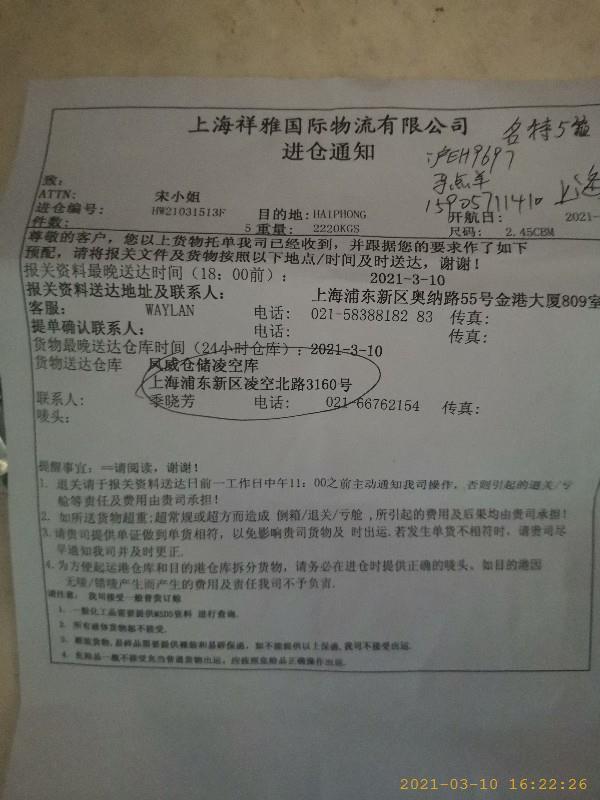 上海祥雅国际物流有限公司
名特5
进仓通知
沪EH9697
15905711410
上海
致:
ATTN: 宋小姐
进仓编号: HW21031513F 目的地:HAIPHONG 开航日: 2021-
件数: 5 重量: 2220KGS 尺码: 2.45CBM
尊敬的客户,您以上货物托单我司已经收到,并跟据您的要求作了如下
预配,请将报关文件及货物按照以下地点/时间及时送达,谢谢!
报关资料最晚送达时间(18:00前): 2021-3-10
报关资料送达地址及联系人: 上海浦东新区奥纳路55号金港大厦809室
客服: WAYLAN 电话: 021-58388182 83 传真:
提单确认联系人: 电话: 传真:
货物最晚送达仓库时间(24小时仓库):2021-3-10
货物送达仓库 风威仓储凌空库
上海浦东新区凌空北路3160号
联系人: 季晓芳 电话: 021-66762154 传真:
唛头:
提醒事宜:==请阅读,谢谢!
1. 退关请于报关资料送达日前一工作日中午11:00之前主动通知我司操作,否则引起的退关/亏
舱等责任及费用由贵司承担!
2. 如所送货物超重;超常规或超方而造成 倒箱/退关/亏舱 ,所引起的费用及后果均由贵司承担!
3.请贵司提供单证做到单货相符,以免影响贵司货物及 时出运.若发生单货不相符时,请贵司尽
早通知我司并及时更正.
4.为方便起运港仓库和目的港仓库拆分货物,请务必在进仓时提供正确的唛头、如目的港因
无唛/错唛产生而产生的费用及责任我司不予负责.
请注意: 我司接受一般普货订舱
1. 一般化工品需要提供MSDS资料 进行查询.
2. 所有液体货物恕不接受.
3. 裸装货物,易碎品需要提供裸装和易碎保函,如不能提供以上保函,我司不接受出运.
4. 危险品一概不接受充当普通货物出运,应按照危险品正确操作出运.
2021-03-10 16:22:26